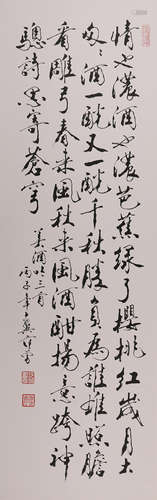 情也濃酒也濃芭蕉綠了櫻桃紅歲月太
匆匆酒一觥又一觥千秋勝負為誰雄照膽
看雕弓春來風秋來風酒酣揚意跨神
驄詩思寄蒼穹
美酒吟三首
丙子季